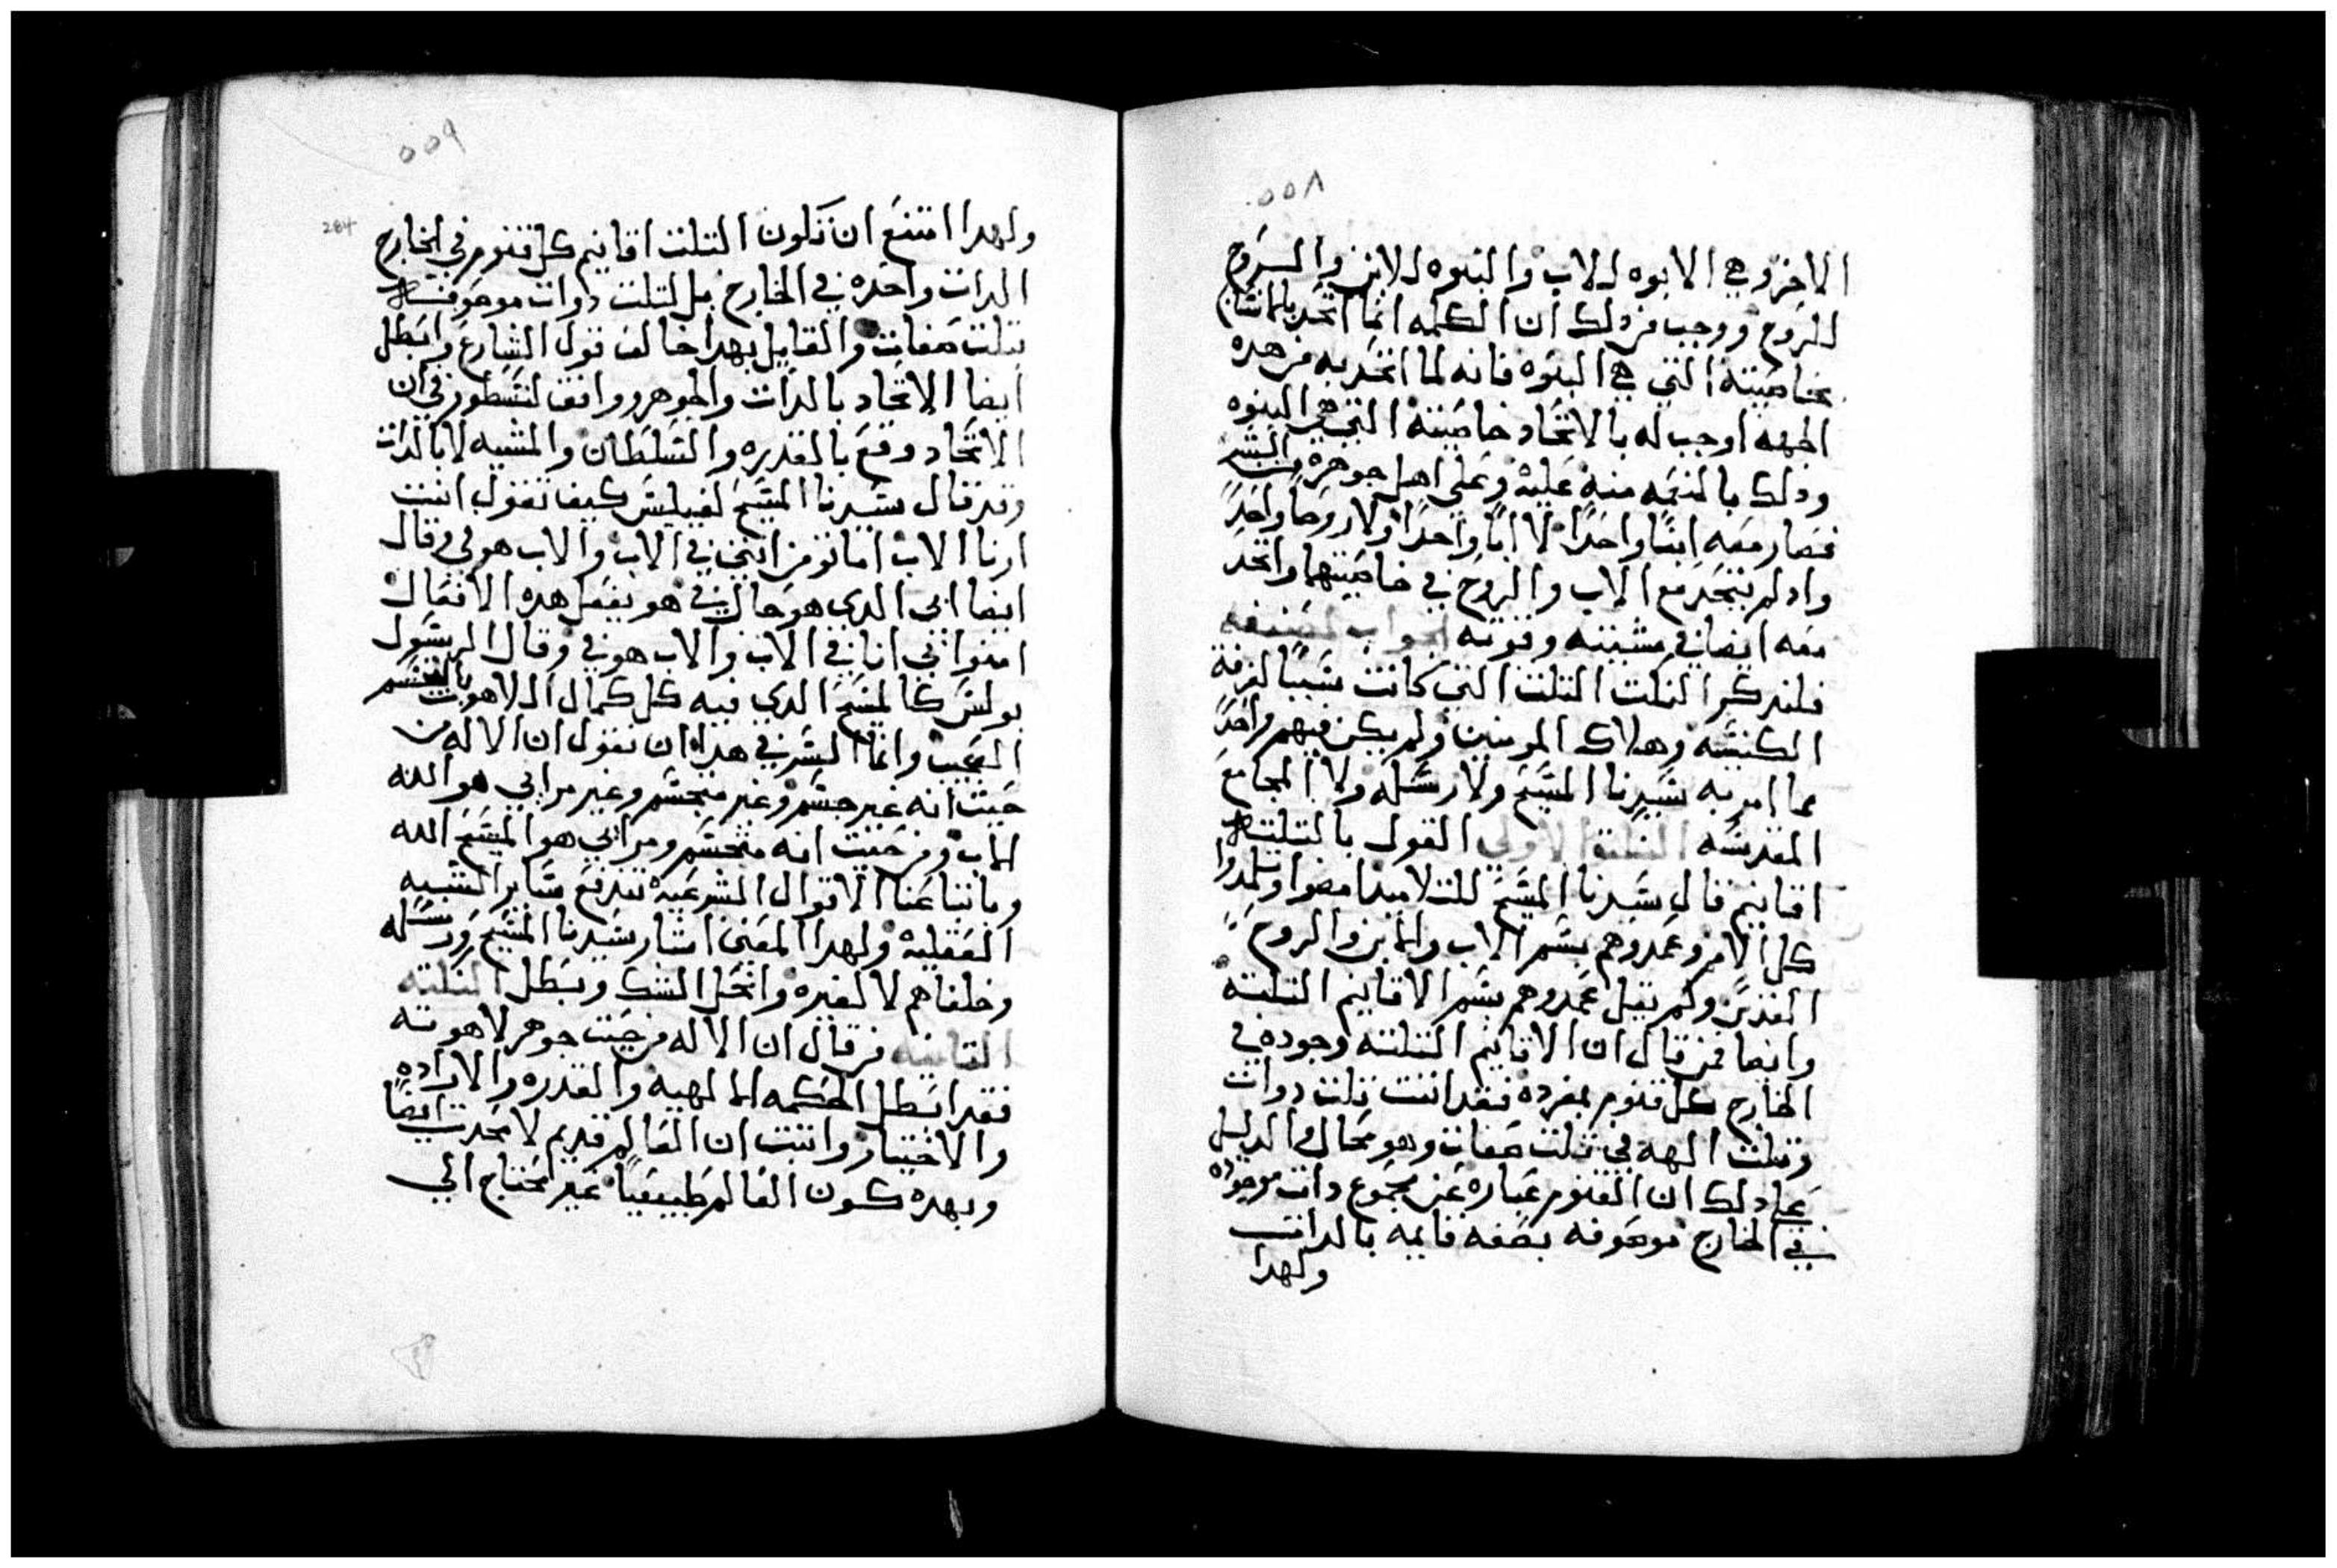 ٥٥٨
الاخر وهي الابوه للاب والبنوه للابن والروح
للروح ووجب من دلك ان الكلمه انما اتحد بالمانتام
بخاصيته التي هي البنوه فانه لما اتحد به من هده
الجهه اوجب له بالاتحاد خاصيته التي هي البنوه
ودلك بالنعمه منه عليه وعلي اهل جوهره البشر
فصار معه ابنًا واحدًا لا ابًا واحدًا ولا روحًا واحدًا
واد لم يتحد مع الاب والروح في خاصيتهما واتحد
معه ايضا في مشيته وقوته الجواب لمصنفه
فلندكر النكت التلت التي كانت سببًا لفرقة
الكنيسه وهلاك المومنين ولم يكن فيهم واحدً
مما امر به سيدنا المسيح ولا رسله ولا المجامع
المقدسه النكتة الاولي القول بالتلته
اقانيم قال سيدنا المسيح للتلاميد امضوا وتلمدوا
كل الامم وعمدوهم بسم الاب والابن والروح
القدس ولم يقل عمدوهم بسم الاقانيم التلته
وايضا فمن قال ان الاقانيم التلته وجوده في
الخارج كل قنوم بمفرده فقد اتبت تلت دوات
وتلت الهه في تلت صفات وهو محال والدليل
علي دلك ان القنوم عباره عن مجموع دات موجوده
في الخارج موصوفه بصفه قايمه بالدات
ولهدا
٥٥٩
284
ولهدا امتنع ان تكون التلت اقانيم كل قنوم في الخارج
الدات واحده في الخارج بل لتلت دوات موصوفه
بتلت صفات والقايل بهدا خالف قول الشارع وابطل
ايضا الاتحاد بالدات والجوهر ووافق لنسطور في ان
الاتحاد وقع بالقدره والسلطان والمشيه لا بالدات
وقد قال سيدنا المسيح لفيلبس كيف تقول انت
ارنا الاب اما تومن انني في الاب والاب هو في وقال
ايضا ابي الدي هو حال في هو يفعل هده الافعال
امنوا اني انا في الاب والاب هو في وقال الرسول
بولس كالمسيح الدي فيه كل كمال اللاهوت بالتجسم
العجيب وانما السر في هدا ان نقول ان الاله من
حيت انه غير جسم وغير متجسم وغير مرايي هو الله
الاب ومن حيت انه متجسم ومرايي هو المسيح الله
وباتباعنا الاقوال الشرعيه تندفع ساير الشبه
العقليه ولهدا المعني اشار سيدنا المسيح ورسله
وخلفاهم لا لغيره وانحل الشك وبطل النكته
التانيه من قال ان الاله من حيت جوهر لاهوته
فقد ابطل الحكمه الالهيه والقدره والاراده
والاختيار واتبت ان العالم قديم لا محدت ايضًا
وبهده كون العالم طبيعيًا غير محتاج الي